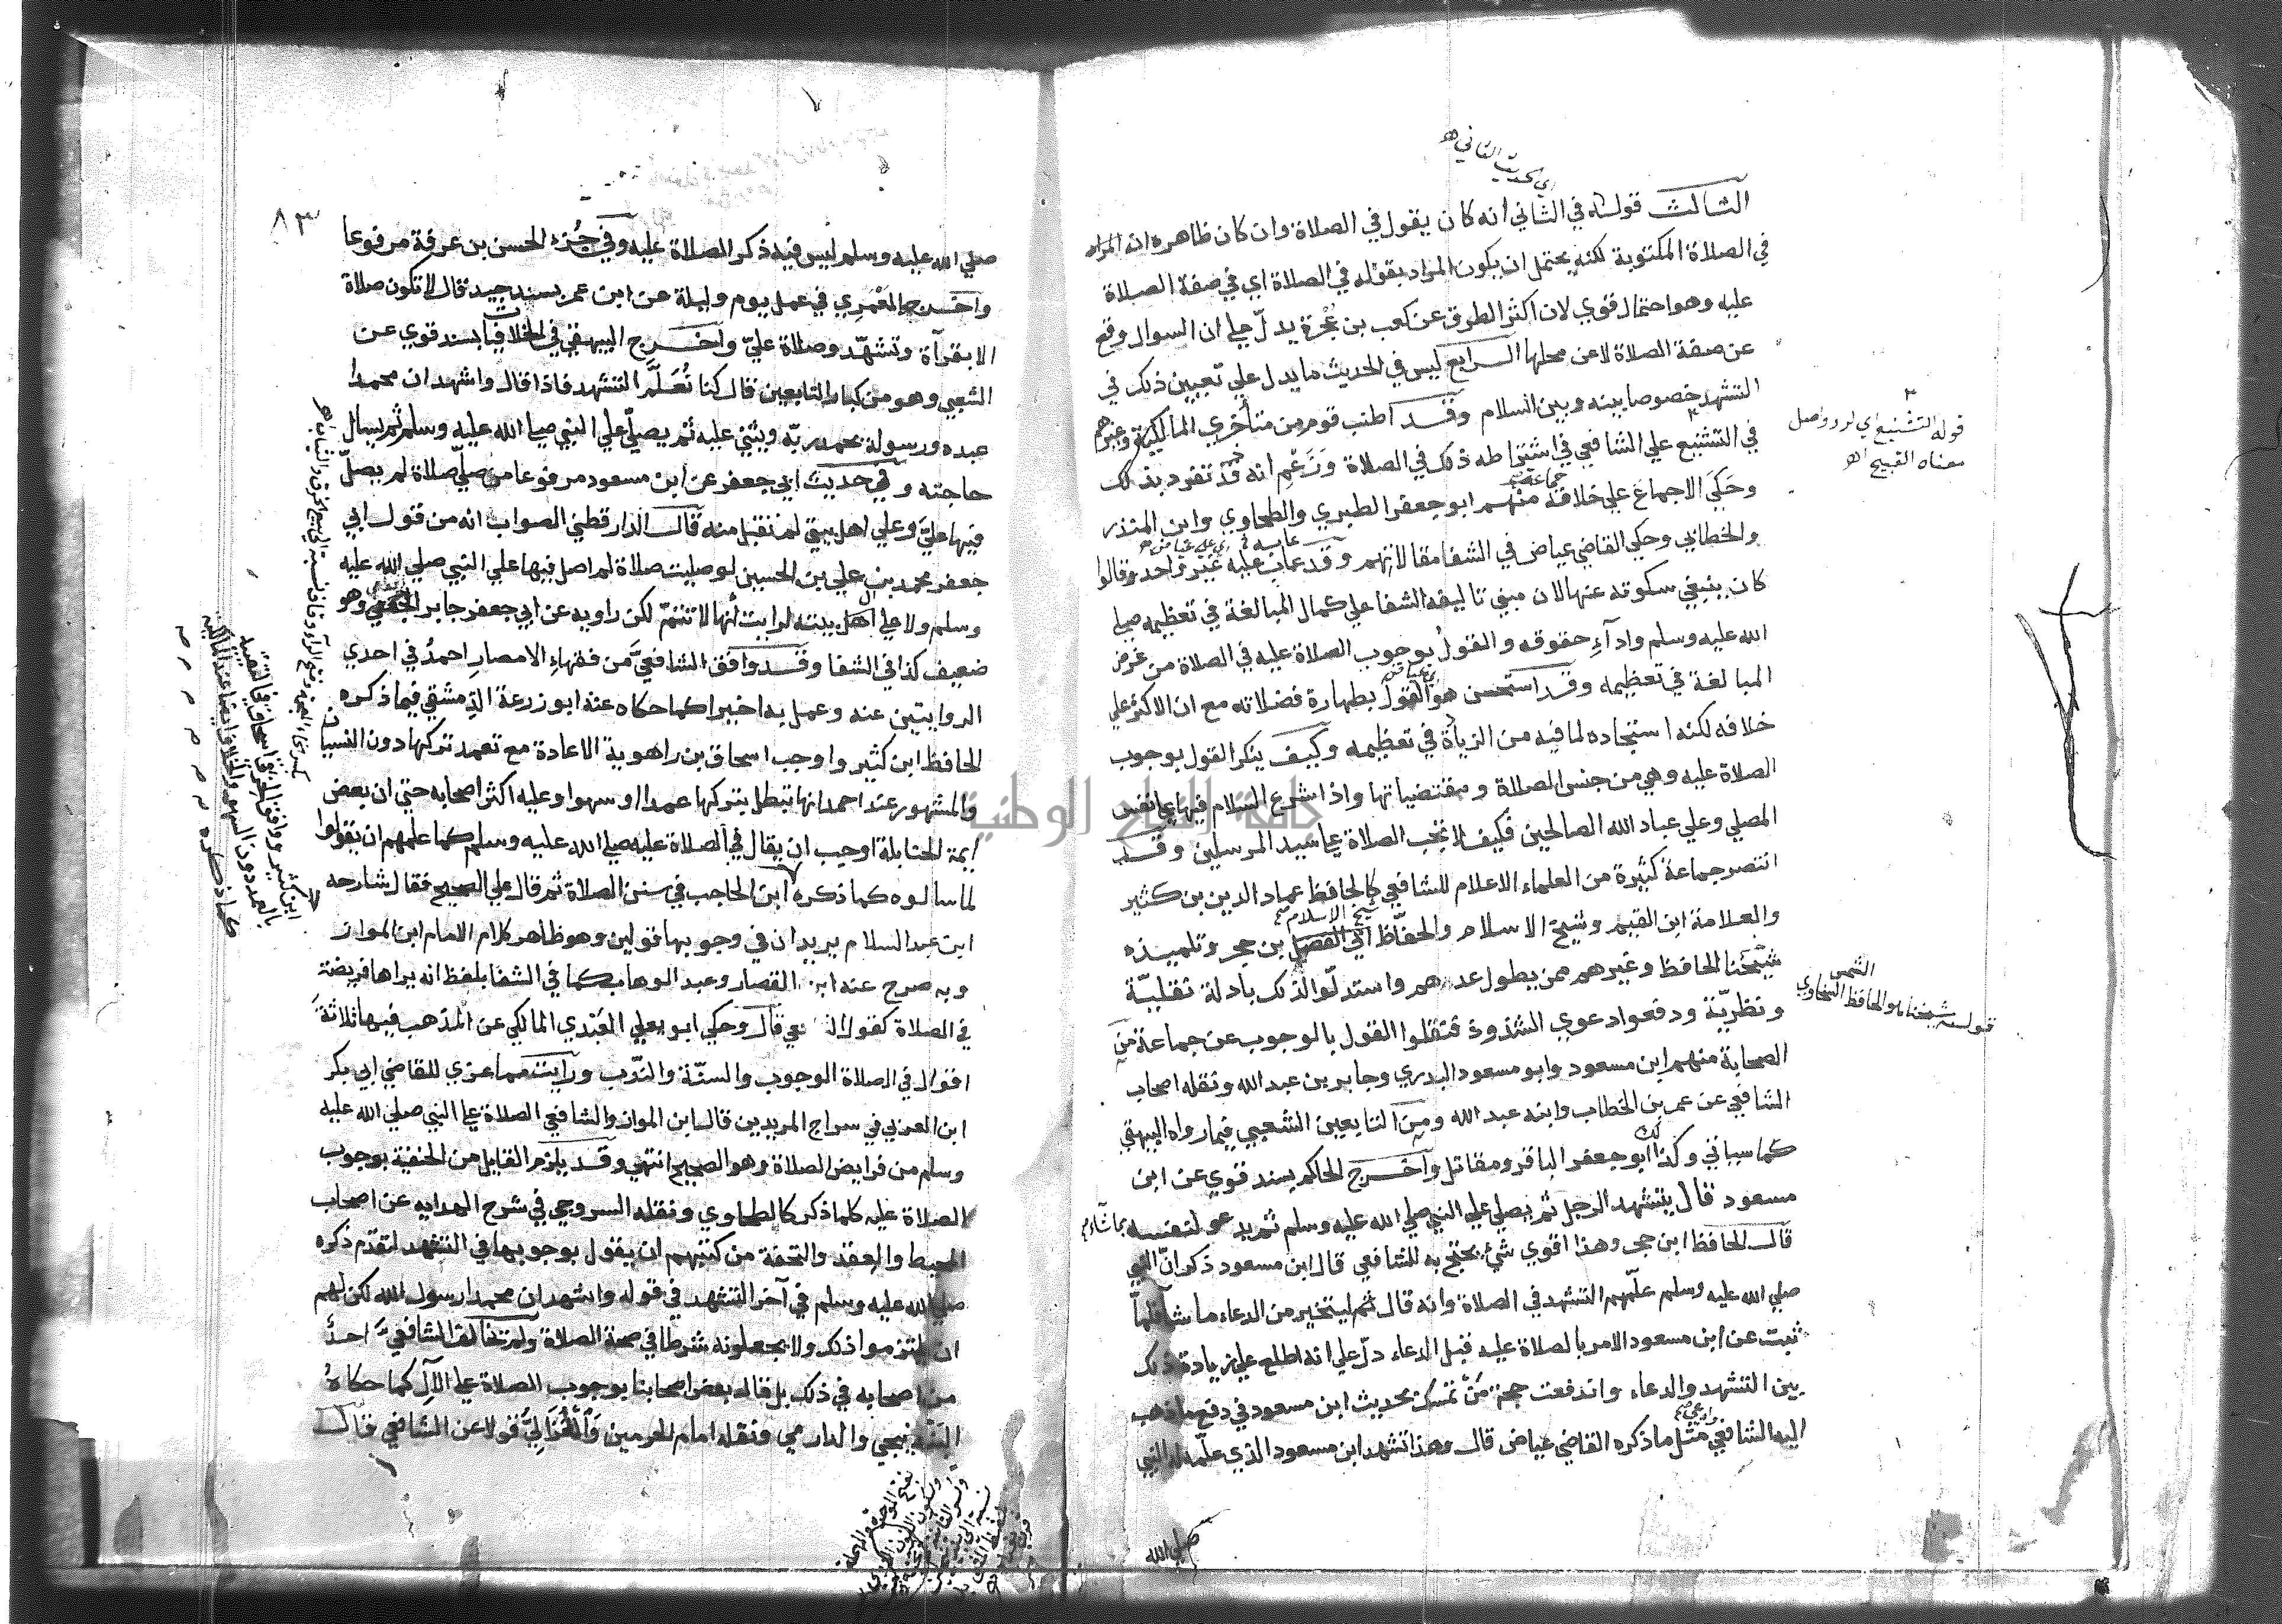 اي الحديث الثاني اهـ
الثالث قوله في الثاني انه كان يقول في الصلاة وان كان ظاهره انه المراد
في الصلاة المكتوبة لكنه يحتمل ان يكون المراد بقوله في الصلاة اي في صفة الصلاة
عليه وهو احتمال قوي لان اكثر الطرق عن كعب بن عجرة يدل علي ان السوال وقع
عن صفة الصلاة لا عن محلها الرابع ليس في الحديث ما يدل علي تعيين ذلك في
التشهد خصوصا بينه وبين السلام وقد اطنب قوم من متأخري المالكية وغيرهم
في التشنيع علي الشافعي في اشتراطه ذلك في الصلاة وزعم انه قد تفرد بذلك
وحكي الاجماع علي خلافه جماعة منهم ابو جعفر الطبري والطحاوي وابن المنذر
والخطابي وحكي القاضي عياض في الشفا مقالاتهم وقد عاب عليه غير واحد وقالوا
كان ينبغي سكوته عنها لان مبني تاليفه الشفا علي كمال المبالغة في تعظيمه صلي
الله عليه وسلم واداء حقوقه والقول بوجوب الصلاة عليه في الصلاة من غرض
المبالغة في تعظيمه وقد استحسن هو القول بطهارة فضلاته مع ان الاكثر علي
خلافه لكنه استجاده لما فيه من الزيادة في تعظيمه وكيف ينكر القول بوجوب
الصلاة عليه وهي من جنس الصلاة ومقتضياتها واذا شرع السلام فيها علي نفس
المصلي وعلي عباد الله الصالحين فكيف لا تجب الصلاة علي سيد المرسلين وقد
انتصر جماعة كثيرة من العلماء الاعلام للشافعي كالحافظ عماد الدين بن كثير
والعلامة ابن القيم وشيخ الاسلام والحفاظ ابي الفضل بن حجر وتلميذه
شيخنا الحافظ وغيرهم ممن يطول عدهم واستدلوا لذلك بادلة نقلية
ونظرية ودفعوا دعوي الشذوذ فنقلوا القول بالوجوب عن جماعة من
الصحابة منهم ابن مسعود وابو مسعود البدري وجابر بن عبد الله ونقله اصحاب
الشافعي عن عمر بن الخطاب وابنه عبد الله ومن التابعين الشعبي فيما رواه البيهقي
كما سياتي وكذا ابو جعفر الباقر ومقاتل واخرج الحاكم بسند قوي عن ابن
مسعود قال يتشهد الرجل ثم يصلي علي النبي صلي الله عليه وسلم ثم يدعو لنفسه بما شاء
قال الحافظ ابن حجر وهذا اقوي شئ يحتج به للشافعي قال ابن مسعود ذكر ان النبي
صلي الله عليه وسلم علمهم التشهد في الصلاة وانه قال ثم ليتخير من الدعاء ما شاء فلما
ثبت عن ابن مسعود الامر بالصلاة عليه قبل الدعاء دل علي انه اطلع علي زيادة ذلك
بين التشهد والدعاء واندفعت حجة من تمسك بحديث ابن مسعود في دفع ما ذهب
اليه الشافعي مثل ما ذكره القاضي عياض قال وهذا تشهد ابن مسعود الذي علمه له النبي
صلي الله
قوله التشنيع اي لرد واصل
معناه القبيح اهـ
الشمس
قوله شيخنا هو الحافظ السخاوي
جامعة النجاح الوطنية
٨٣
صلي الله عليه وسلم ليس فيه ذكر الصلاة عليه وفي جزء الحسن بن عرفة مرفوعا
واخرج المعمري في عمل يوم وليلة عن ابن عمر بسند جيد قال لا تكون صلاة
الا بقرآة وتشهد وصلاة علي واخرج البيهقي في الخلافيات بسند قوي عن
الشعبي وهو من كبار التابعين قال كنا نعلم التشهد فاذا قال واشهد ان محمدا
عبده ورسوله يحمد ربه ويثني عليه ثم يصلي علي النبي صلي الله عليه وسلم ثم يسال
حاجته وفي حديث ابي جعفر عن ابن مسعود مرفوعا من صلي صلاة لم يصل
فيها علي وعلي اهل بيتي لم تقبل منه قال الدارقطني الصواب انه من قول ابي
جعفر محمد بن علي بن الحسين لو صليت صلاة لم اصل فيها علي النبي صلي الله عليه
وسلم ولا علي اهل بيته لرايت انها لا تتم لكن راويه عن ابي جعفر جابر الجعفي وهو
ضعيف كذا في الشفا وقد وافق الشافعي من فقهاء الامصار احمد في احدي
الروايتين عنه وعمل به اخيرا كما حكاه عنه ابو زرعة الدمشقي فيما ذكره
الحافظ ابن كثير واوجب اسحاق بن راهوية الاعادة مع تعمد تركها دون النسيان
والمشهور عند احمد انها تبطل بتركها عمدا او سهوا وعليه اكثر اصحابه حتي ان بعض
ايمة الحنابلة اوجب ان يقال في الصلاة عليه صلي الله عليه وسلم كما علمهم ان يقولوا
لما سالوه كما ذكره ابن الحاجب في سنن الصلاة ثم قال علي الصحيح فقال شارحه
ابن عبد السلام يريد ان في وجوبها قولين وهو ظاهر كلام الامام ابن المواز
وبه صرح عنه ابن القصار وعبد الوهاب كما في الشفا بلفظ انه يراها فريضة
في الصلاة كقول الشافعي قال وحكي ابو يعلي العبدي المالكي عن المذهب فيها ثلاثة
اقوال في الصلاة الوجوب والسنة والندب ورايت مما عزي للقاضي ابي بكر
ابن العربي في سراج المريدين قال ابن المواز والشافعي الصلاة علي النبي صلي الله عليه
وسلم من فرايض الصلاة وهو الصحيح انتهي وقد يلزم القايل من الحنفية بوجوب
الصلاة عليه كلما ذكر كالطحاوي ونقله السروجي في شرح الهدايه عن اصحاب
المحيط والعقد والتحفة من كتبهم ان يقول بوجوبها في التشهد لتقدم ذكره
صلي الله عليه وسلم في آخر التشهد في قوله واشهد ان محمدا رسول الله لكن لهم
ان يلتزموا ذلك ولا يجعلونه شرطا في صحة الصلاة ولم يخالف الشافعي احد
من اصحابه في ذلك بل قال بعض اصحابنا بوجوب الصلاة علي الآل كما حكاه
البندنيجي والدارمي ونقله امام الحرمين والغزالي قولا عن الشافعي قال